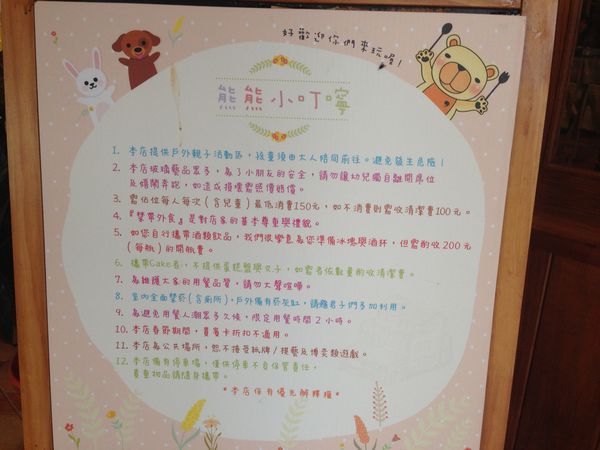 好歡迎你們來玩喔!
熊熊小叮嚀
1. 本店提供戶外親子活動區,孩童須由大人陪同前往。避免發生危險!
2. 本店玻璃藝品眾多,為了小朋友的安全,請勿讓幼兒獨自離開席位
及嬉鬧奔跑,如造成損壞需照價賠償。
3. 需佔位每人每次(含兒童)最低消費150元,如不消費則需收清潔費100元。
4. 『禁帶外食』是對店家的基本尊重與禮貌。
5. 如您自行攜帶酒類飲品,我們很樂意為您準備冰塊與酒杯,但需酌收200元
(每瓶)的開瓶費。
6. 攜帶Cake者,不提供蛋糕盤與叉子,如需者依數量酌收清潔費。
7. 為維護大家的用餐品質,請勿大聲喧嘩。
8. 室內全面禁菸(含廁所),戶外備有菸灰缸,請癮君子們多加利用。
9. 為避免用餐人潮眾多久候,限定用餐時間2小時。
10. 本店春節期間,貴賓卡折扣不適用。
11. 本店為公共場所,恕不接受紙牌/棋藝及博奕類遊戲。
12. 本店備有停車場,僅供停車不負保管責任,
貴重物品請隨身攜帶。
*本店保有優先解釋權*